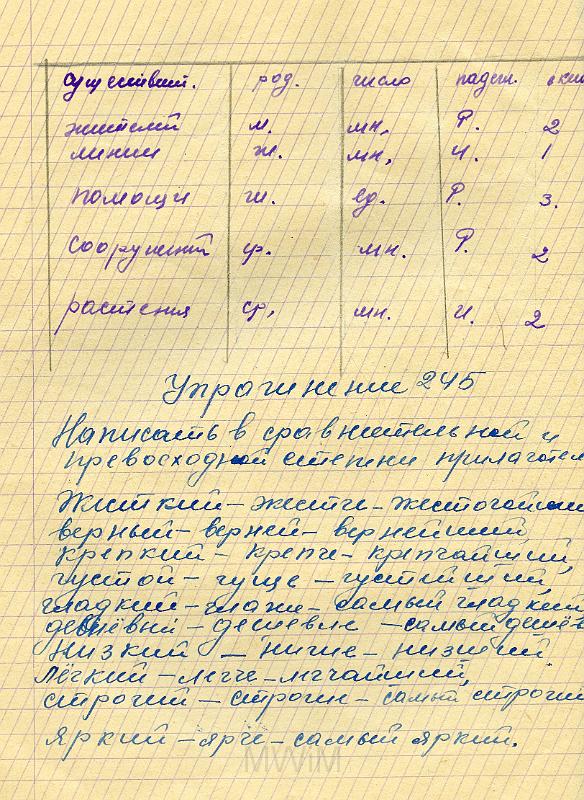 существит. род. число падеж.
жителей м. мн. Р. 2
линии ж. мн. И. 1
помощи ж. ед. Р. 3.
сооружений ср. мн. Р. 2
растения ср. мн. И. 2
Упражнение 245
Написать в сравнительной и
превосходной степени прилагател
Жёсткий – жёстче –
верный – верней – вернейший,
крепкий – крепче – крепчайший,
густой – гуще – густейший,
гладкий – глаже – самый гладкий
дешёвый – дешевле – самый дешёв
низкий – ниже – низший,
лёгкий – легче – легчайший,
строгий – строже – самый строгий
яркий – ярче – самый яркий.
MWiM